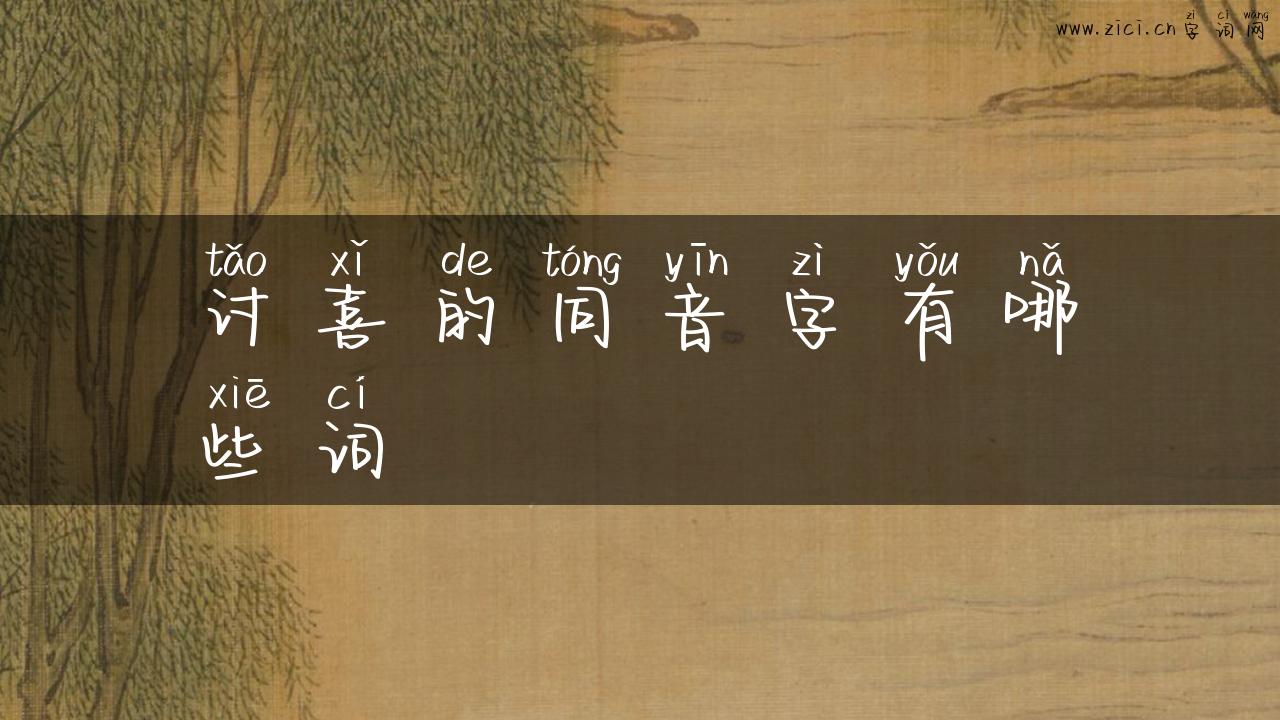 zì cí wǎng
www.zici.cn 字词网
tǎo xǐ de tóng yīn zì yǒu nǎ
讨喜的同音字有哪
xiē cí
些词